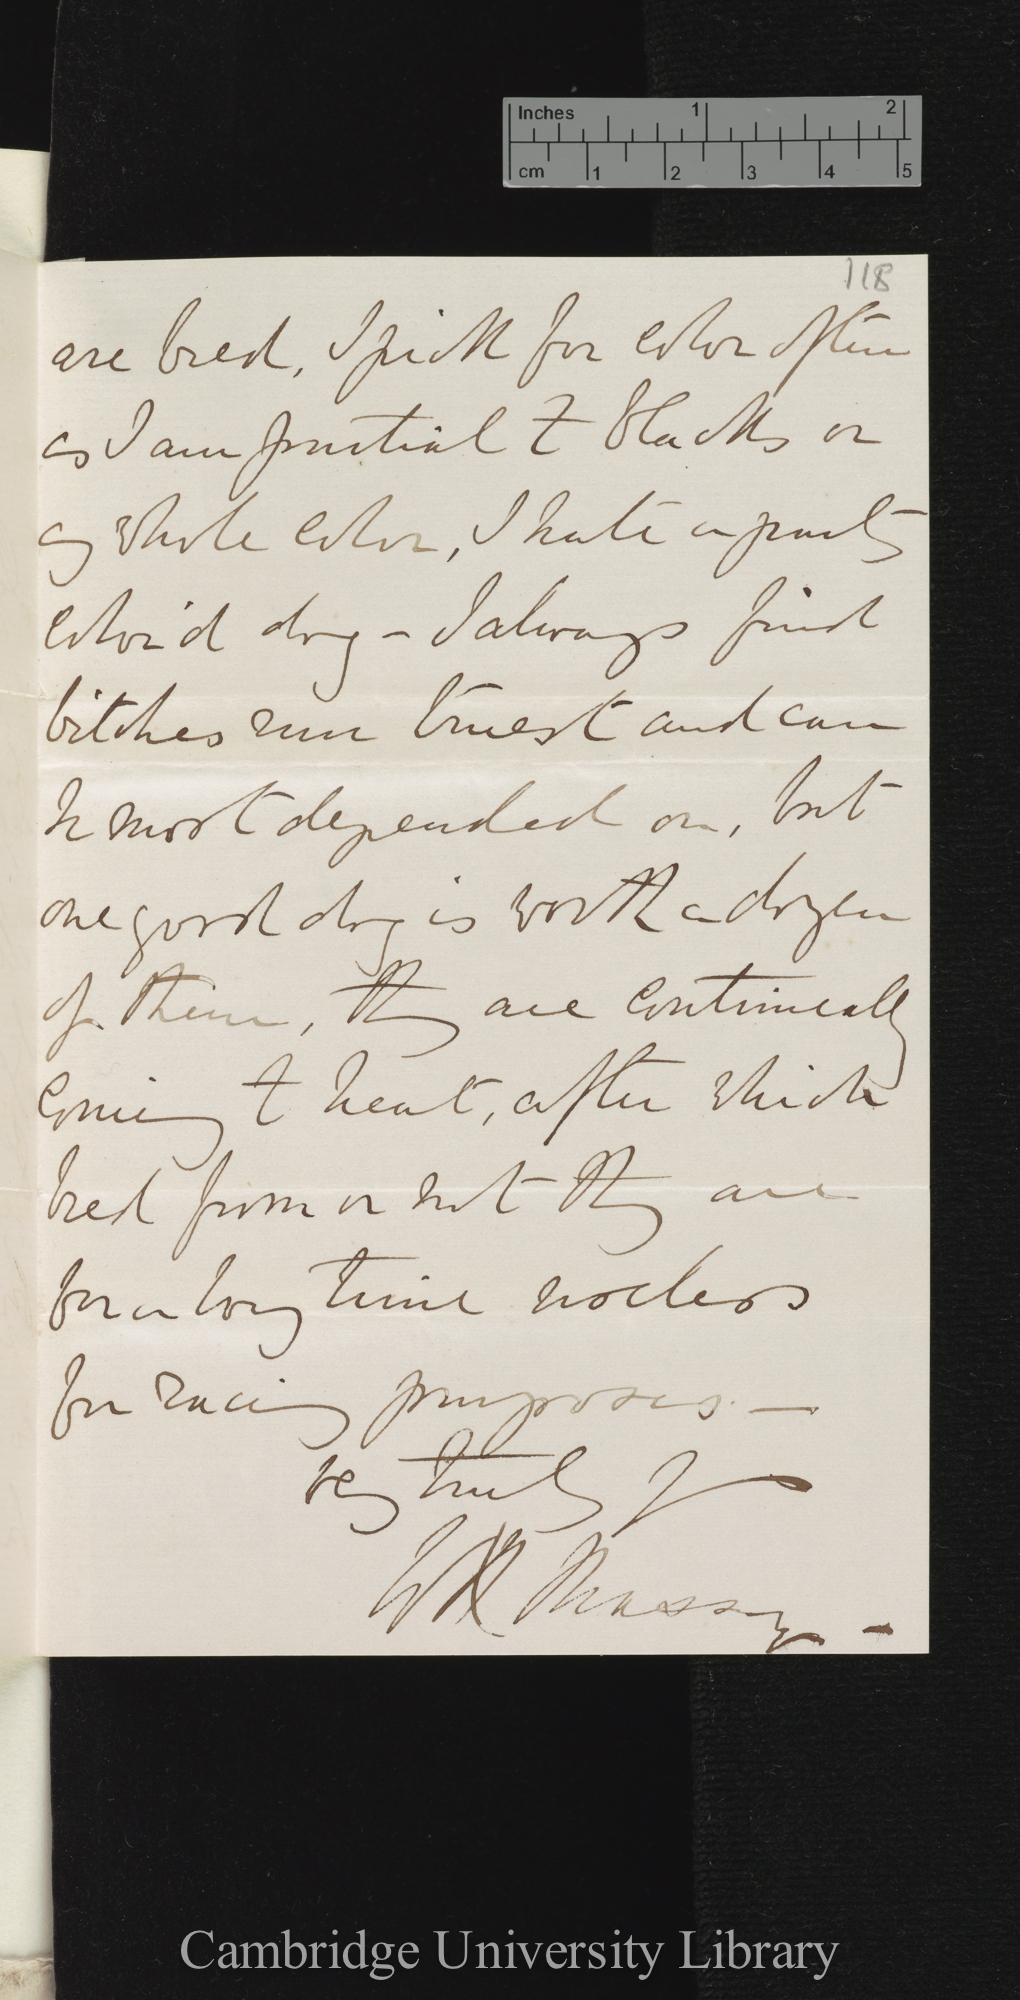 Inches 1 2
cm 1 2 3 4 5
118
are bred, I pick for color often
as I am partial to blacks or
any whole color, I hate a party
color'd dog – I always find
bitches run truest and can
be most depended on, but
one good dog is worth a dozen
of them, they are continually
coming to heat, after which
bred from or not they are
for a long time useless
for racing purposes. —
very truly yrs
W Massey –
Cambridge University Library